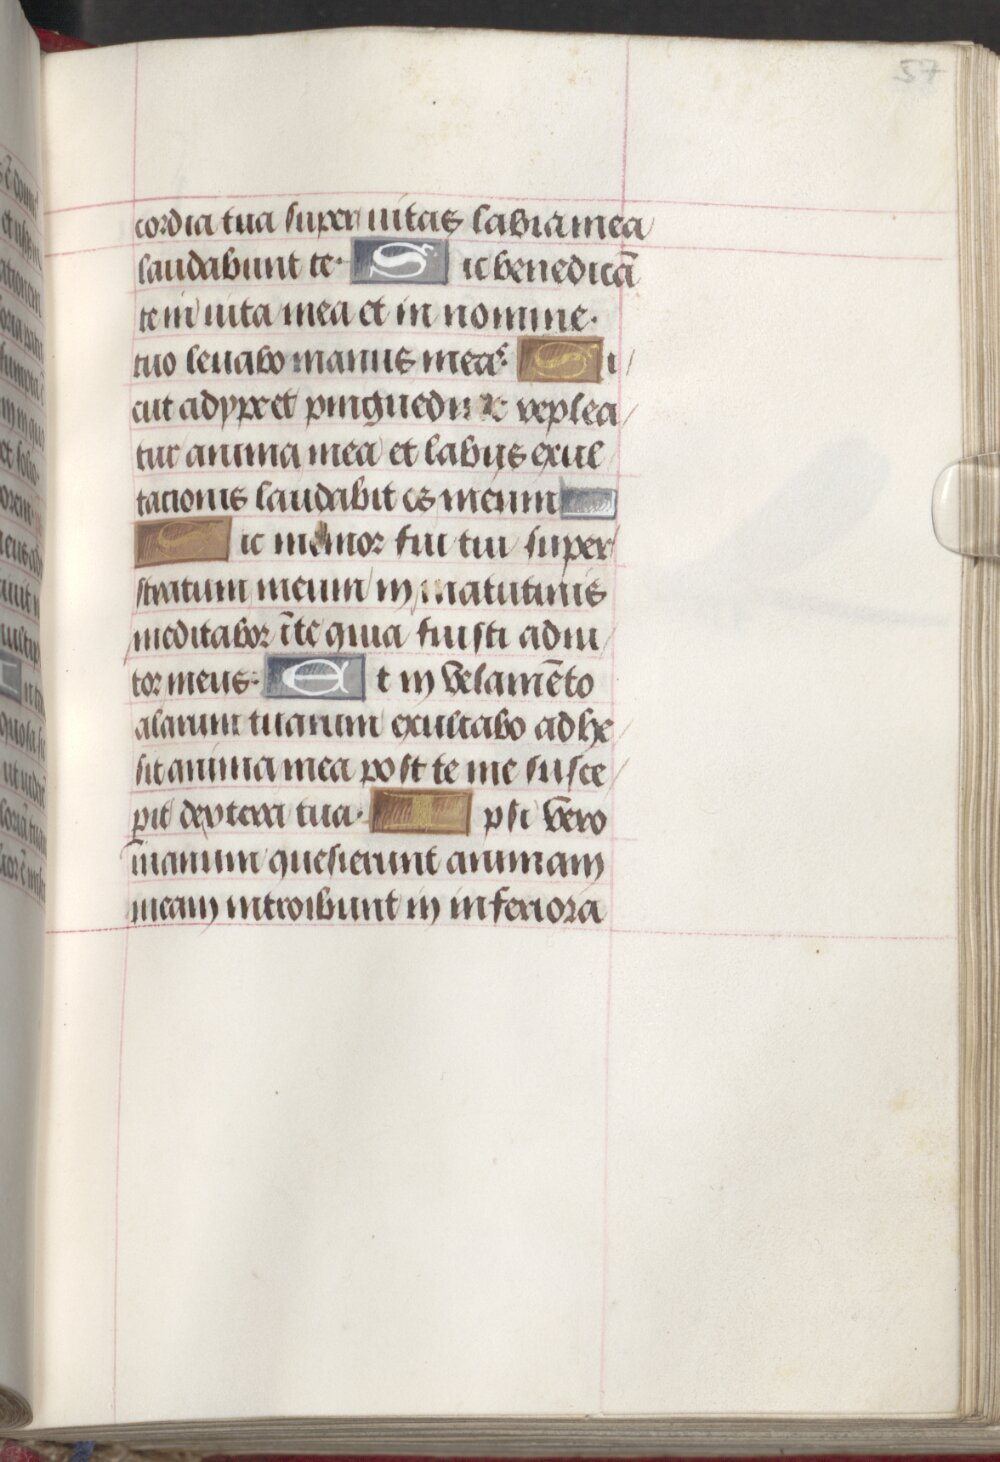 57
cordia tua super uitas labia mea
laudabunt te · S ic benedicā
te in uita mea et in nomine ·
tuo leuabo manus meas · S i
cut adypæt pinguedi replea
tur anima mea et labijs exul
tationis laudabit os meum
S ic memor fui tui super
stratum meum in matutinis
meditabor ī te quia fuisti adiu
tor meus : E t in velamēto
alarum tuarum exultabo adhe
sit anima mea post te me susce
pit dextera tua · I psi vero
inanum quesierunt animam
meam introibunt in inferiora